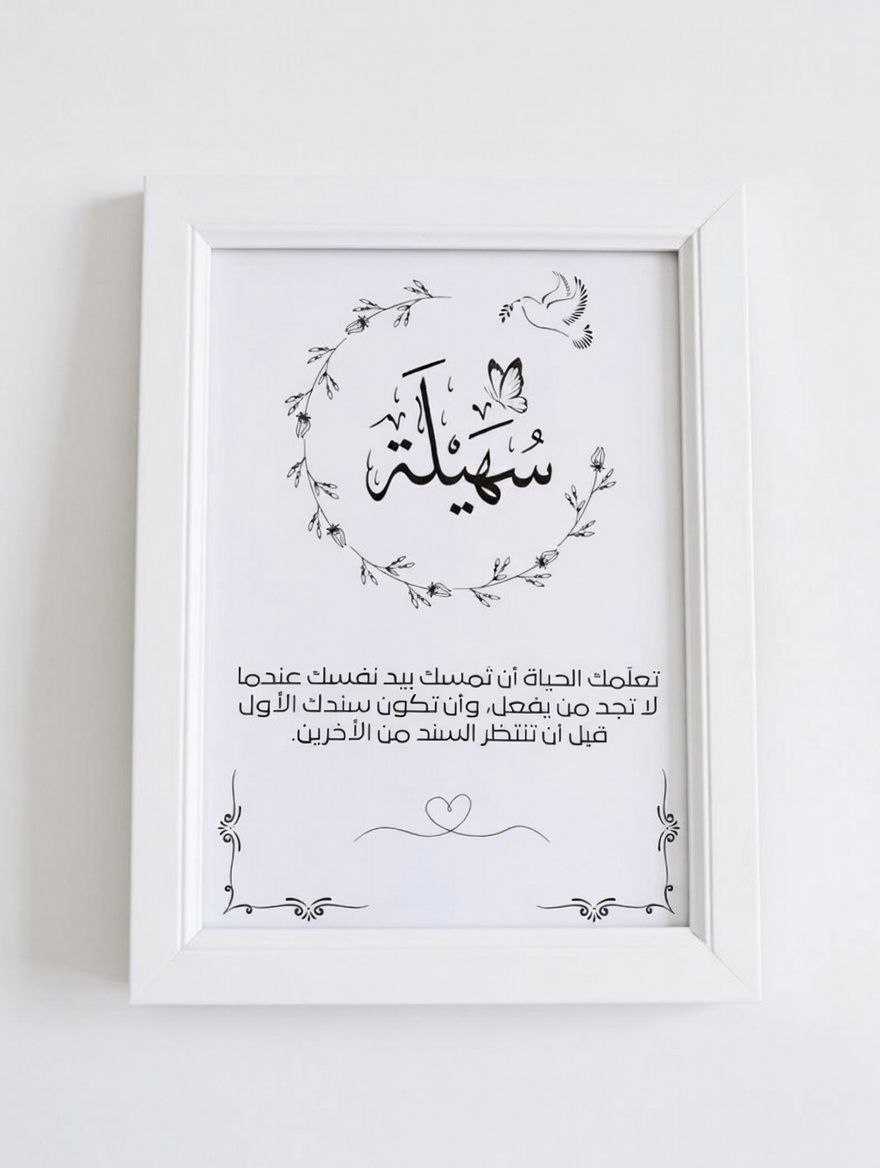 سُهَيْلَة
تعلّمك الحياة أن تمسك بيد نفسك عندما
لا تجد من يفعل، وأن تكون سندك الأول
قبل أن تنتظر السند من الأخرين.